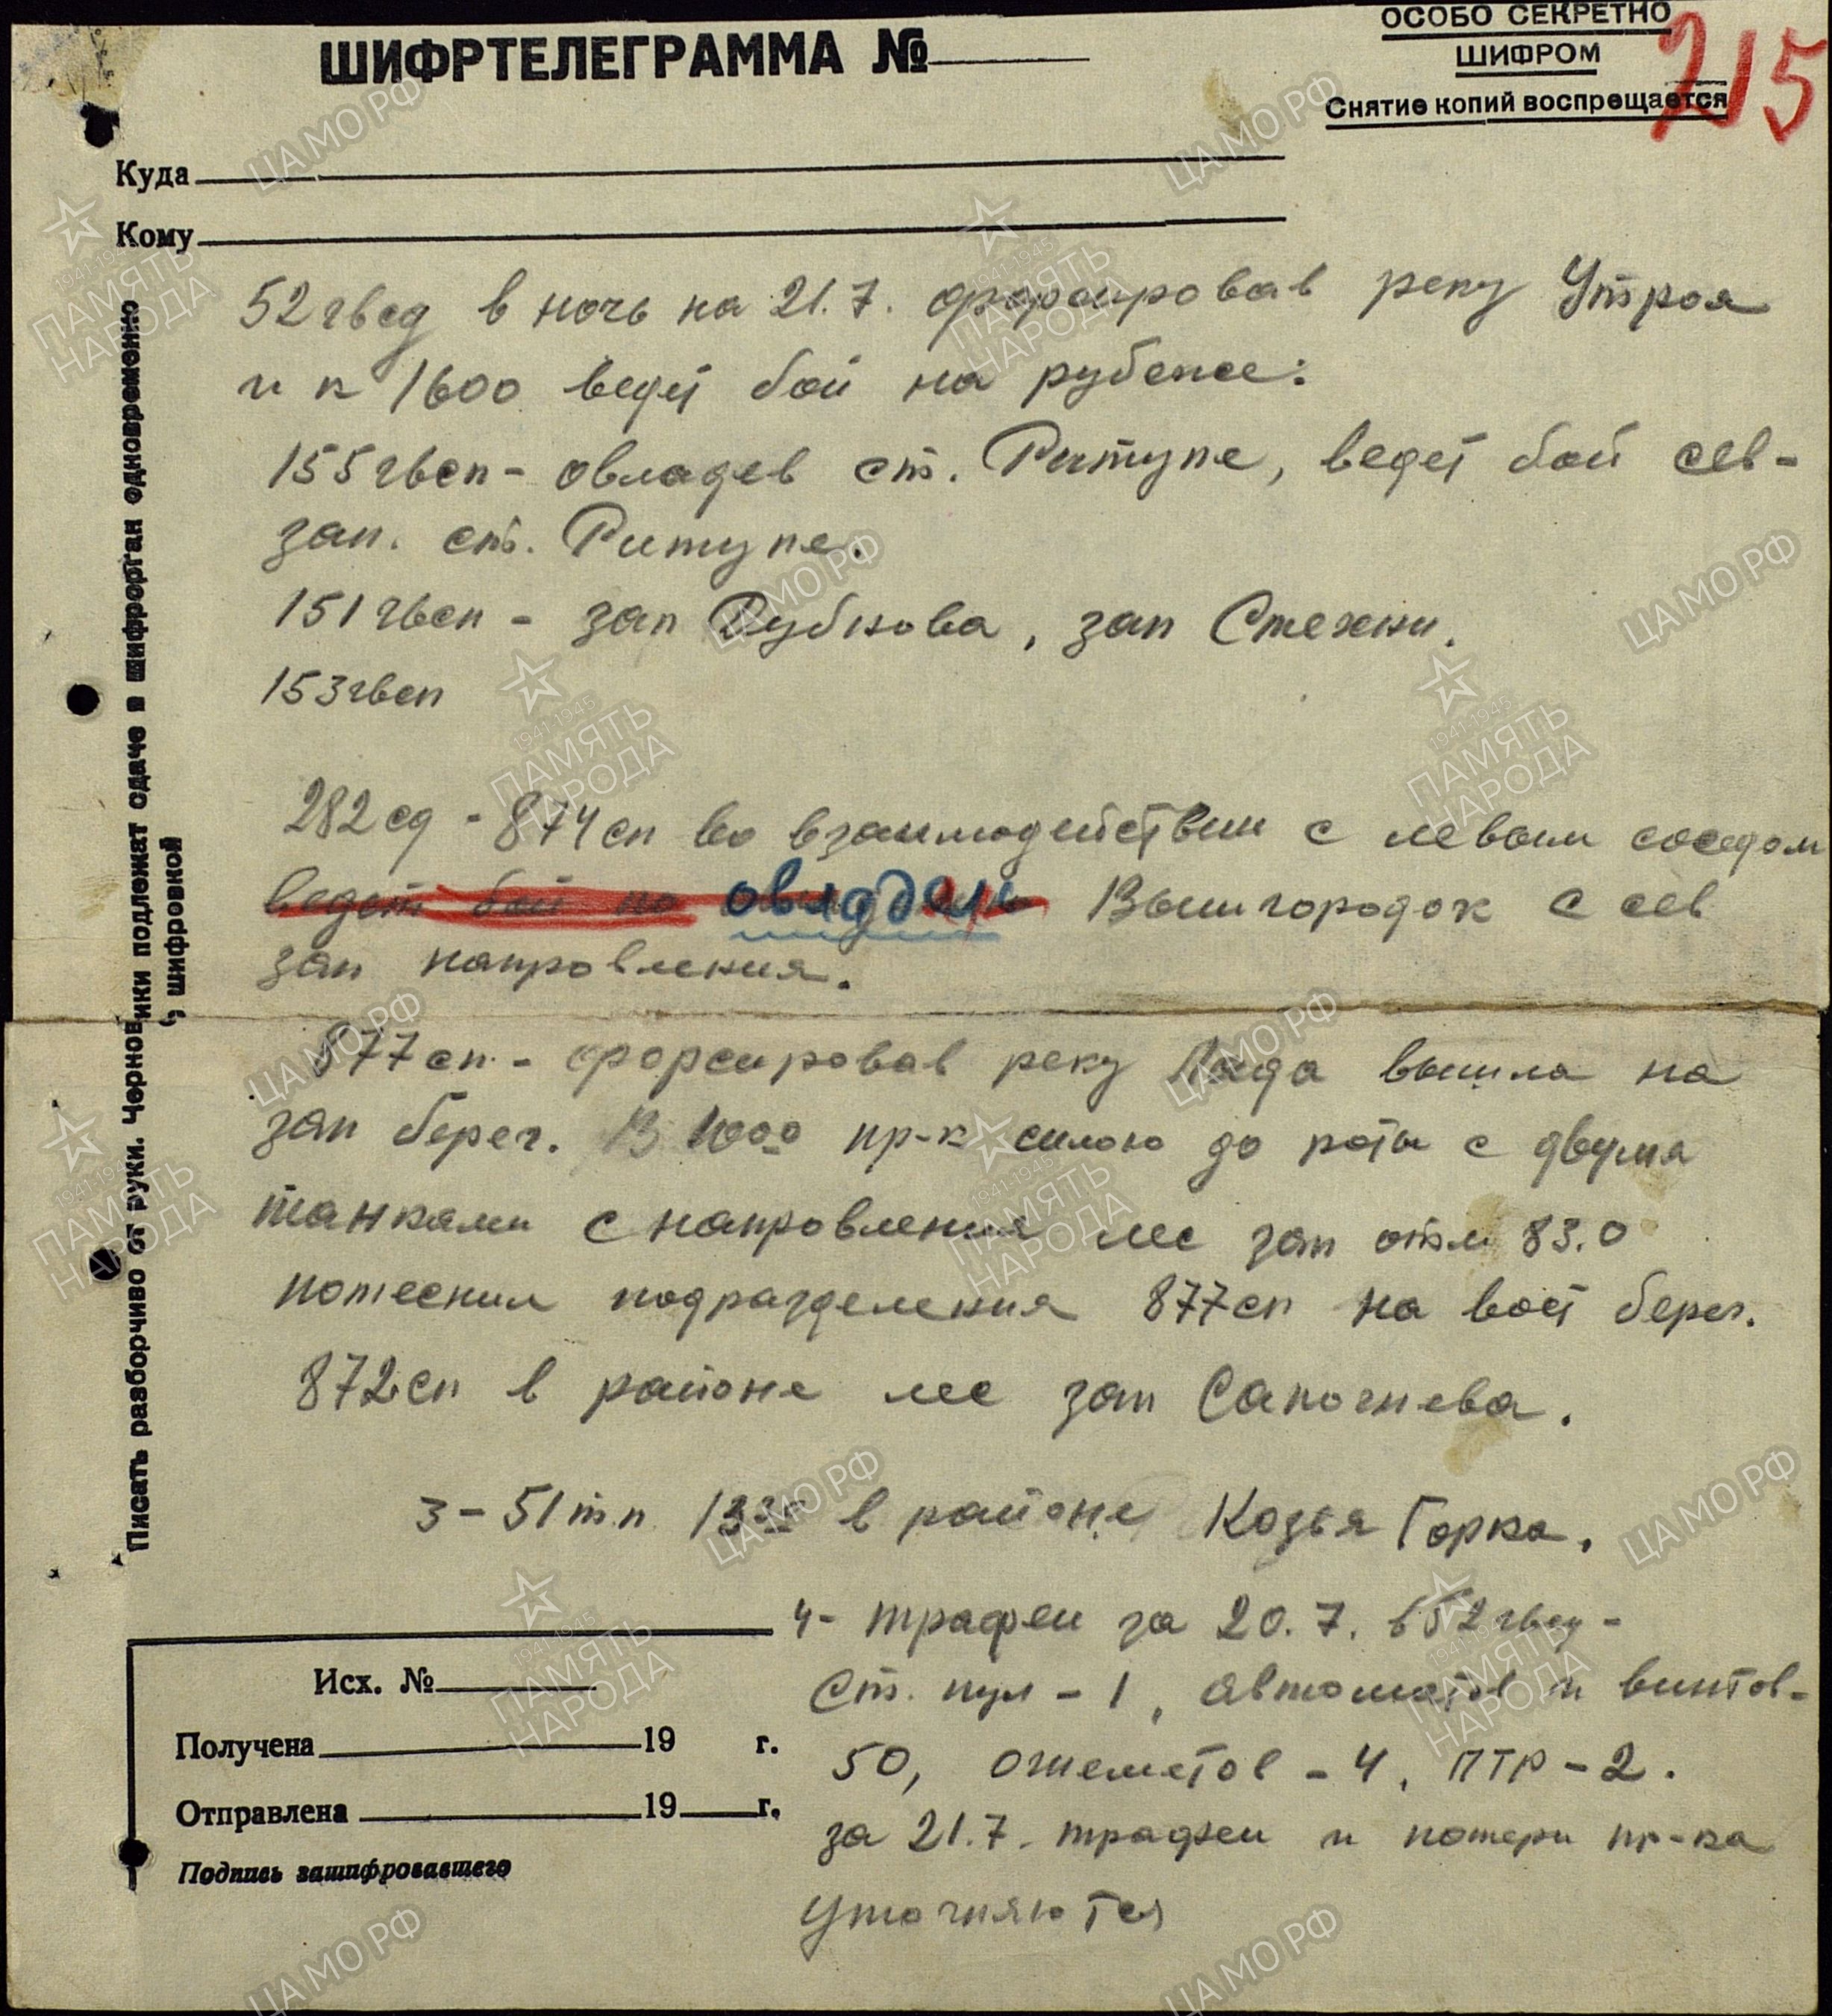 ШИФРТЕЛЕГРАММА №
ОСОБО СЕКРЕТНО
ШИФРОМ
Снятие копий воспрещается
215
Куда
Кому
52 гвсд в ночь на 21.7. форсировав реку Утроя
и к 1600 ведет бой на рубеже:
155 гвсп - овладев ст. Ритупе, ведет бой сев-
зап. ст. Ритупе.
151 гвсп - зап Рубкова, зап Стежки.
153 гвсп
282 сд - 874 сп во взаимодействии с левым соседом
ведет бой по овладел Вышгородок с сев
зап направления.
877 сп - форсировав реку Лжа вышла на
зап берег. В 1000 пр-к силою до роты с двумя
танками с направления лес зап отм 83.0
потеснил подразделения 877 сп на вост берег.
872 сп в районе лес зап Сапогнева.
3 - 51 т.п. в районе Козья Горка.
4 - трафеи за 20.7. в 52 гвсд -
Ст. пул - 1, автоматов и винтов-
50, огнеметов - 4, ПТР - 2.
за 21.7. трафеи и потери пр-ка
уточняются
Писать разборчиво от руки. Черновики подлежат сдаче в шифрорган одновременно
с шифровкой
Исх. №
Получена 19 г.
Отправлена 19 г.
Подпись зашифровавшего
ЦАМО РФ
1941-1945
ПАМЯТЬ
НАРОДА